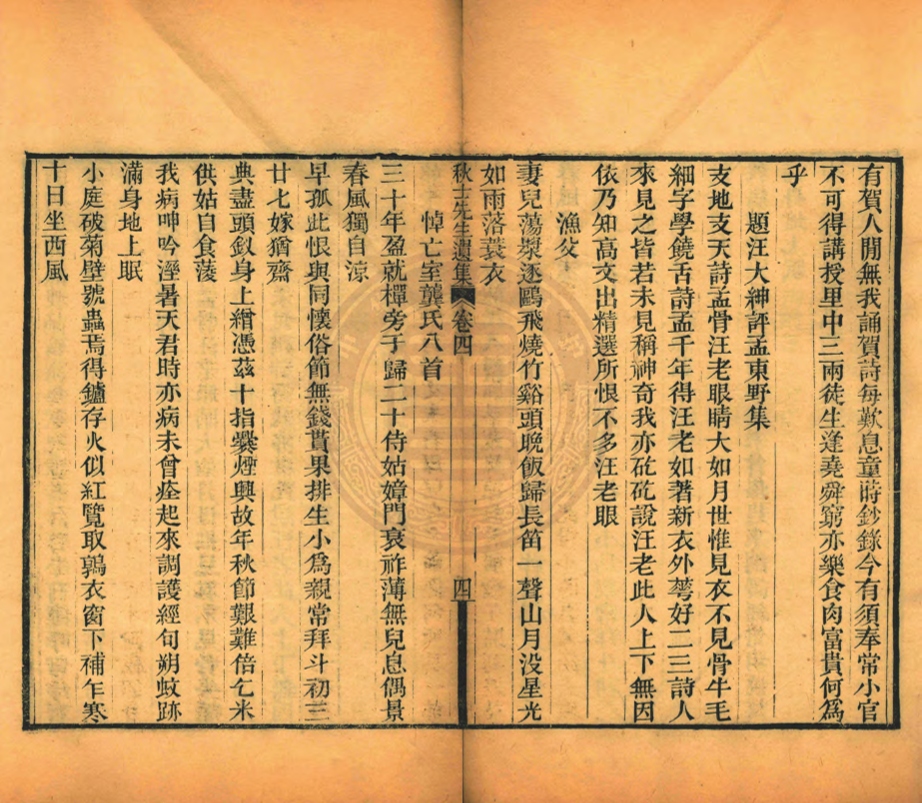 有賀人閒無我誦賀詩每歎息童蒔鈔錄今有須奉常小官
不可得講授里中三兩徒生逢堯舜窮亦樂食肉富貴何爲
乎
題汪大紳評孟東野集
支地支天詩孟骨汪老眼睛大如月世惟見衣不見骨牛毛
細字學鐃舌詩孟千年得汪老如著新衣外蕚好二三詩人
來見之皆若未見稱神奇我亦矻矻說汪老此人上下無因
依乃知高文出精選所恨不多汪老眼
漁父
妻兒蕩槳逐鷗飛燒竹谿頭晚飯歸長笛一聲山月没星光
如雨落蓑衣
秋士先生遺集 卷四 四
悼亡室龔氏八首
三十年盈就櫸旁于歸二十侍姑嫜門衰祚薄無兒息偶景
春風獨自涼
早孤此恨與同懷俗節無錢貰果排生小爲親常拜斗初三
廿七嫁猶齋
典盡頭釵身上繒憑茲十指爨煙興故年秋節艱難倍乞米
供姑自食菱
我病呻吟溼暑天君時亦病未曾痊起來調護經旬朔蚊跡
滿身地上眠
小庭破菊壁號蟲焉得鑪存火似紅覽取鶉衣窗下補乍寒
十日坐西風